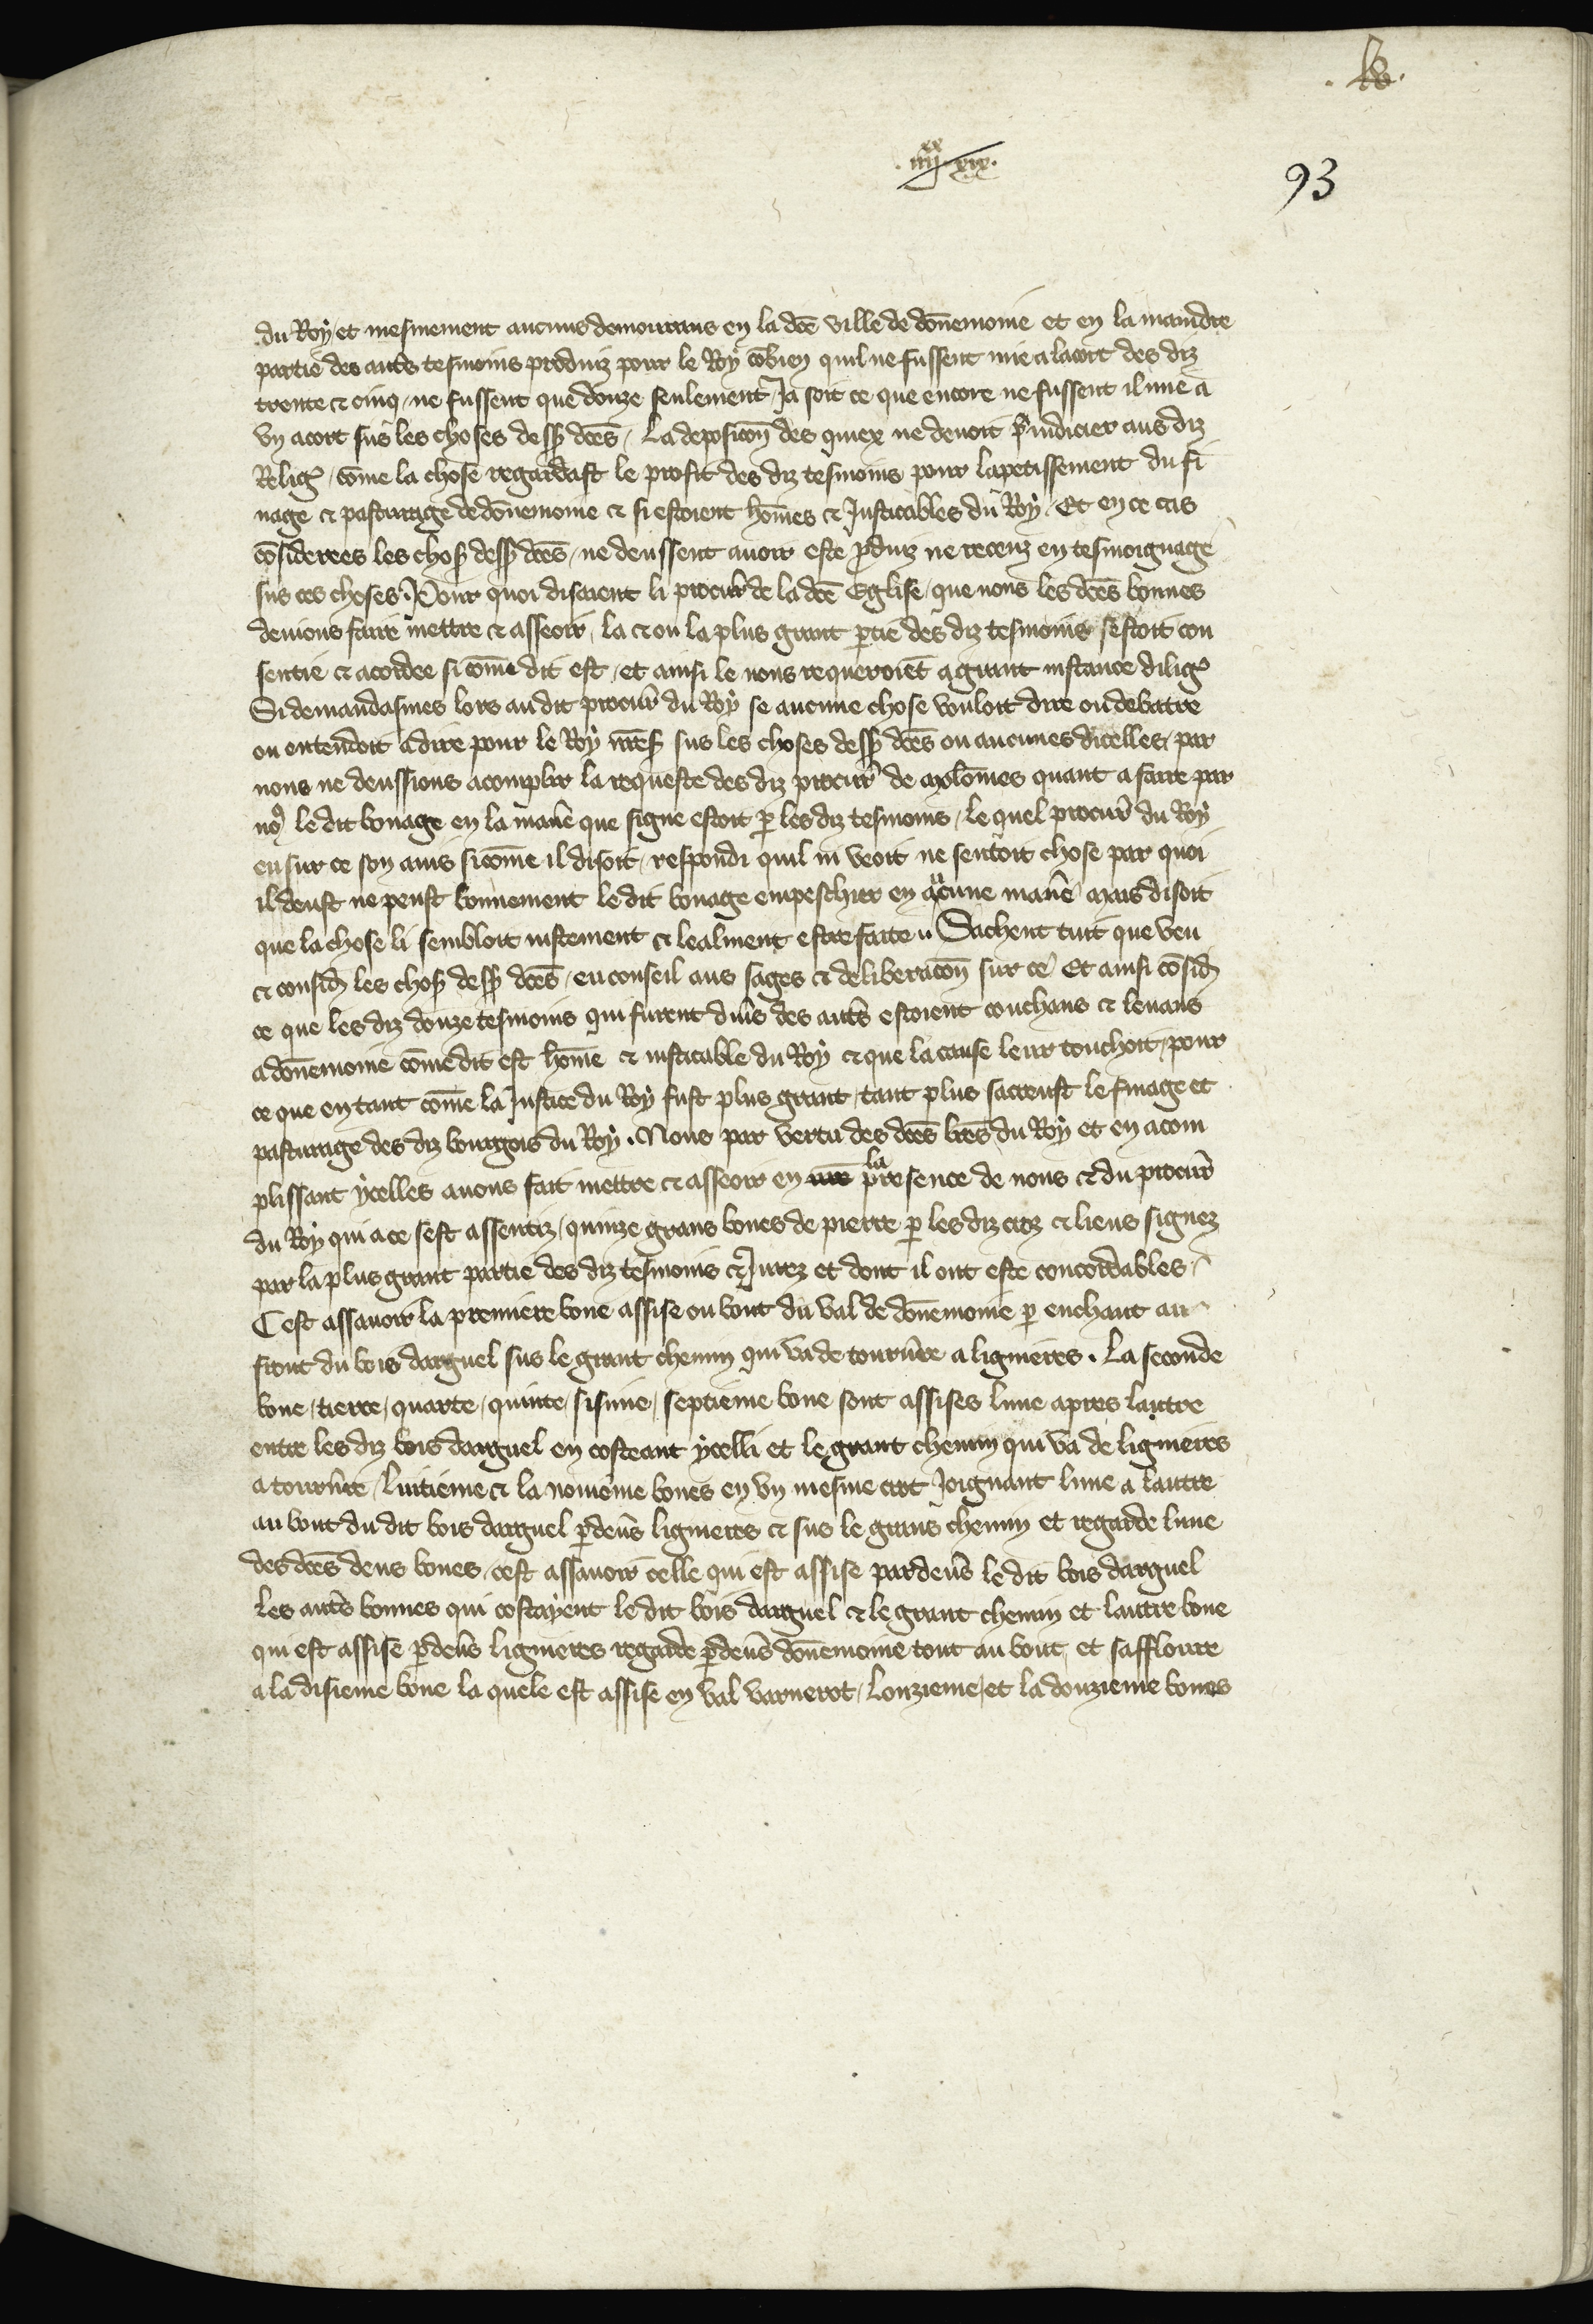 .iiii xx xix.
93
du Roy / et mesmement aucuns demourans en la dce ville de donemoine et en la maindre
partie des autres tesmoins produiz pour le Roy cobien quil ne fussent mie a lacort des diz
trente & cinq / ne fussent que douze seulement Ja soit ce que encore ne fussent il mie a
un acort sus les choses dess dces / La deposicon des quiex ne devoit preiudicier aus diz
Relig / come la chose regardast le profit des diz tesmoins pour lapetissement du fi
nage & pasturage de donemoine & si estoient homes & Justicables du Roy / Et en ce cas
considerees les chos dess dces / ne deussent avoir este produiz ne receuz en tesmoignage
sus ces choses. Pour quoi disoient li procur de la dce Eglise / que nous les dces bonnes
devions faire mettre & asseoir / la & ou la plus grant ptie des diz tesmoins sestoit con
sentie & acordee si come dit est / et ainsi le nous requeroiet a grant instance dilig
Si demandasmes lors au dit procur du Roy se aucune chose vouloit dire ou debatre
ou entendoit a dire pour le Roy nres sus les choses dess dces ou aucunes dicelles / par
nous ne deussions acomplir la requeste des diz procur de molomes quant a faire par
no9 le dit bonage en la mane que signe estoit p les diz tesmoins / le quel procur du Roy
eu sur ce son avis si come il disoit / respondi quil ni veoit ne sentoit chose par quoi
il deust ne peust bonnement le dit bonage empeschier en aucune mane Mais disoit
que la chose li sembloit iustement & lealment estre faite .. Sachent tuit que veu
& consid les chos dess dces / eu conseil aus sages & deliberacon sur ce Et ainsi consid
ce que les diz douze tesmoins qui furent divs des auts estoient couchans & levans
a donemoine come dit est home & iusticable du Roy & que la cause leur touchoit / pour
ce que en tant come la Justice du Roy fust plus grant / tant plus sacreust le finage et
pasturage des diz bourgois du Roy . Nous par vertu des dces lres du Roy et en acom
plissant ycelles avons fait mettre & asseoir en la presence de nous & du procur
du Roy qui a ce sest assentiz / quinze grans bones de pierre p les diz etz & lieus signez
par la plus grant partie des diz tesmoins & Jurez et dont il ont este concordables /
Cest assavoir la premiere bone assise ou bout du val de donemoine p enchant au
front du bois darguel sus le grant chemin qui va de tournre a lignieres . La seconde
bone / tierce / quarte / quinte / sisime / septieme bone sont assises lune apres lautre
entre les diz bois darguel en costeant ycelli et le grant chemin qui va de lignieres
a tournre / Luitieme & la novieme bones en un mesme etot Joignant lune a lautre
au bout du dit bois darguel pdevs lignieres & sus le grans chemin et regarde lune
des dces deus bones / cest assavoir celle qui est assise pardevs le dit bois darguel
les auts bonnes qui costoyent le dit bois darguel & le grant chemin et lautre bone
qui est assise pdevs lignieres regarde pdevs donemoine tout au bout / et saffloure
a la disieme bone la quele est assise en val varnerot / Lonzieme / et la douzieme bones